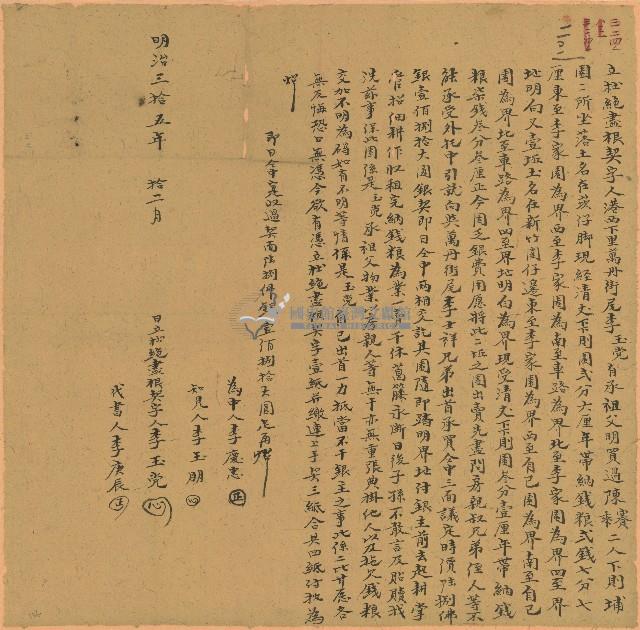 立杜絕盡根契字人港西下里萬丹街尾李玉覓有承祖父明買過陳賽 二人下則埔
園二所坐落土名在茨仔脚現經清丈下則園弍分六厘年帶納錢粮弍錢七分七
厘東至李家園為界西至李家園為界南至車路為界北至李家園為界四至界
址明白又壹坵土名在新竹園仔邊東至李家園為界西至自己園為界南至自己
園為界北至車路為界四至界址明白為界現受清丈下則園叁分壹厘年帶納錢
粮柒錢叁分叁厘正今因乏銀費用應將此二坵之園出賣先盡問房親叔兄弟侄人等不
能承受外托中引就向與萬丹街尾李士祥兄弟出首承買仝中三面議定時價陸捌佛
銀壹佰捌拾大圓銀契即日仝中兩相交訖其園隨即踏明界址付銀主前去起耕掌
管招佃耕作收租完納錢粮為業一賣千休葛藤永斷日後子孫不敢言及貼贖找
洗茲事保此園係是玉覓承祖父物業與房親人等無干亦無重張典掛他人以及拖欠錢粮
交加不明為碍如有不明等情係是玉覓自己出首一力抵當不干銀主之事此係二比甘愿各
無反悔恐口無憑今欲有憑立杜絕盡根契字壹紙并繳連上手契三紙合共四紙付執為
炤
即日仝中完收過契面陸捌佛銀壹佰捌拾大圓完再炤
為中人李慶忠
知見人李玉明
日立杜絕盡根契字人李玉覓
代書人李庚辰
明治三拾五年 拾二月